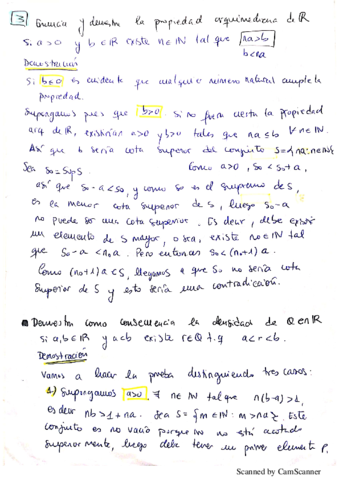 3 Enuncia y demuestra la propiedad arquimediana de ℝ
Si a>0 y b∈ℝ existe n∈ℕ tal que na>b
b<na
Demostración
Si b≤0 es evidente que cualquier número natural cumple la
propiedad.
Supongamos pues que b>0 Si no fuera cierta la propiedad
arq de ℝ, existirían a>0 y b>0 tales que na≤b ∀n∈ℕ
Así que b sería cota superior del conjunto S={na:n∈ℕ}
Sea s₀=Sup S Como a>0, s₀<s₀+a,
así que s₀-a<s₀, y como s₀ es el supremo de S,
es la menor cota superior de S, luego s₀-a
no puede ser una cota superior. Es decir, debe existir
un elemento de S mayor, o sea, existe n₀∈ℕ tal
que s₀-a<n₀a. Pero entonces s₀<(n₀+1)a.
Como (n₀+1)a<S, llegamos a que s₀ no sería cota
superior de S y esto sería una contradicción.
Demostrar como consecuencia la densidad de ℚ en ℝ
si a,b∈ℝ y a<b existe r∈ℚ t.q a<r<b.
Demostración
Vamos a hacer la prueba distinguiendo tres casos:
1) Supongamos a>0 n∈ℕ tal que n(b-a)>1,
Es decir nb>1+na. Sea S={m∈ℕ: m>na}. Este
conjunto es no vacío porque ℕ no está acotado
superiormente, luego debe tener un primer elemento p.
Scanned by CamScanner